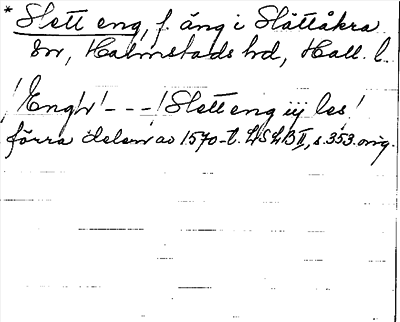 * Slett eng, f. äng i Slättåkra
sn, Halmstads hd, Hall. l.
/Engh/ - - - /Slett eng iij les/
förra delen av 1570-t. HSLB II, s. 353. orig.